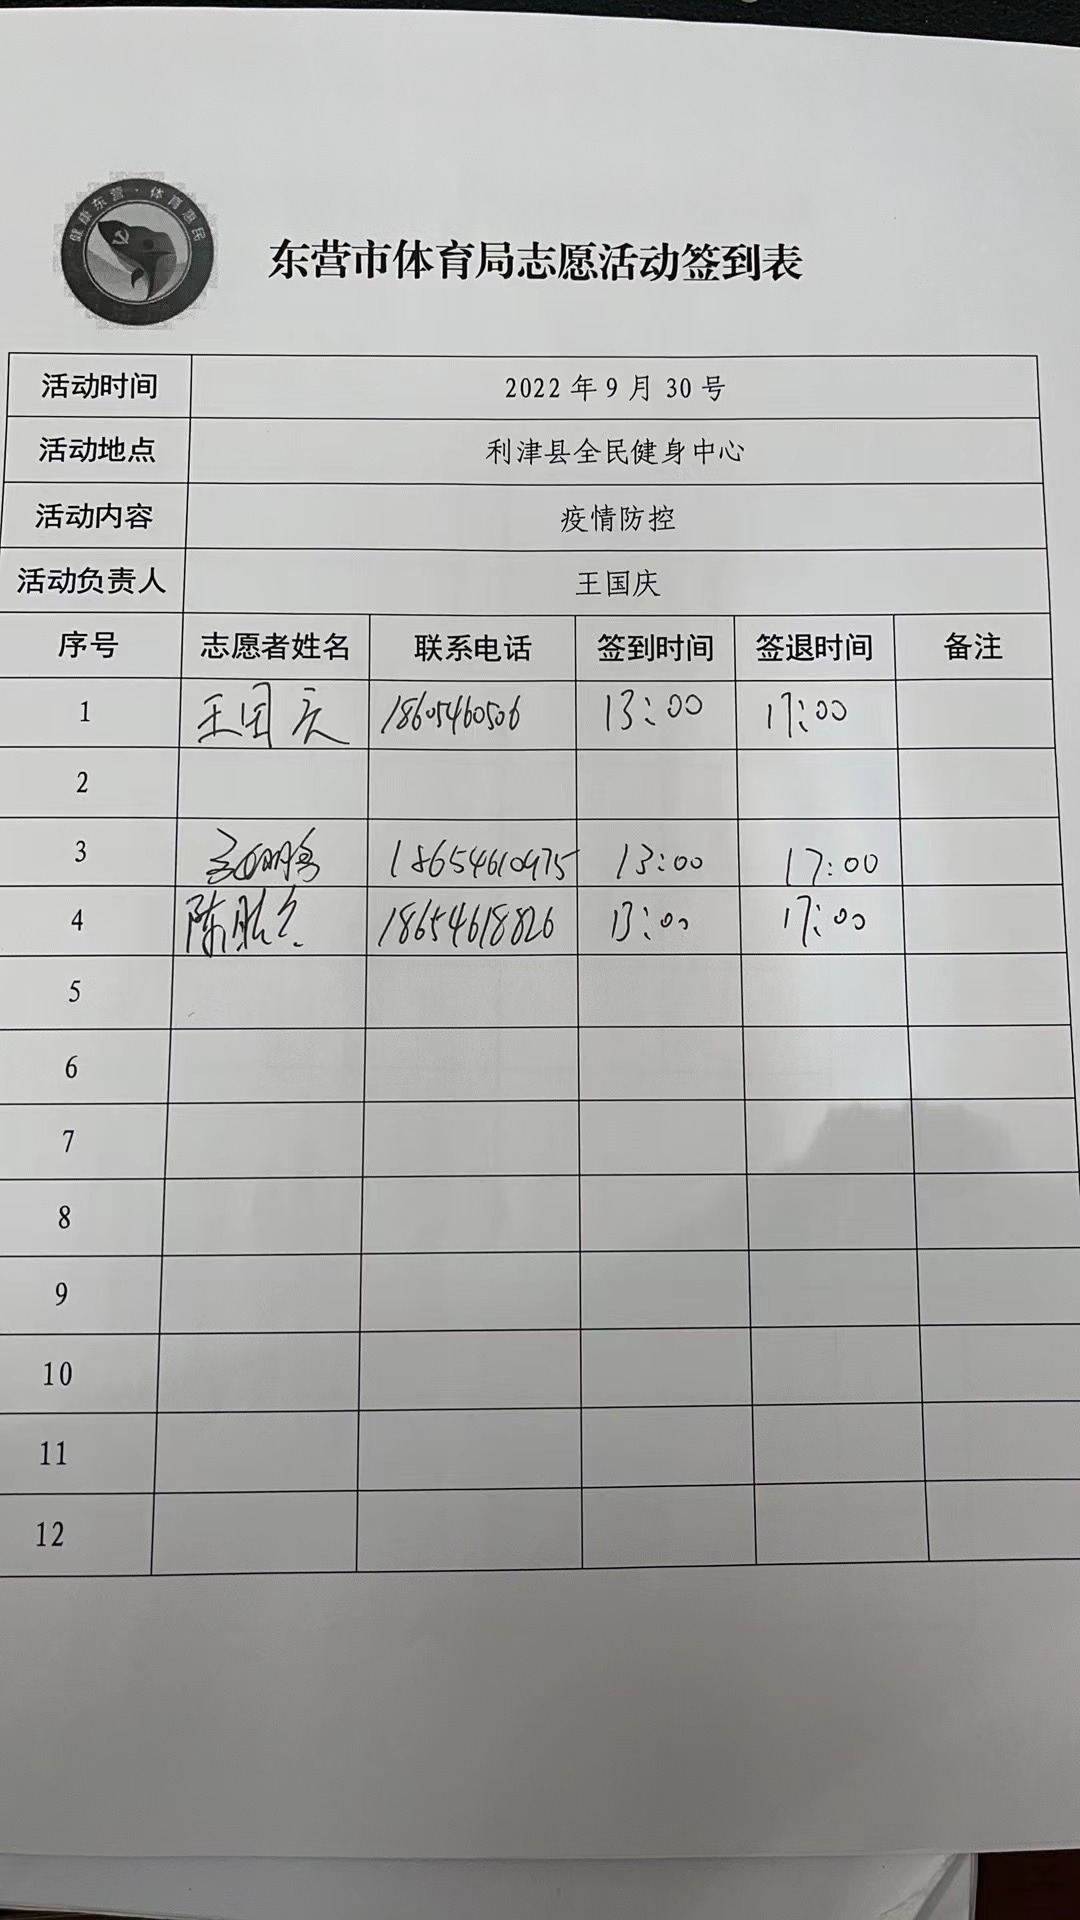 健康东营·体育惠民
东营市体育局志愿活动签到表
活动时间 2022年9月30号
活动地点 利津县全民健身中心
活动内容 疫情防控
活动负责人 王国庆
序号 志愿者姓名 联系电话 签到时间 签退时间 备注
1 王国庆 18605460506 13:00 17:00
2
3 18654610975 13:00 17:00
4 陈 18654618826 13:00 17:00
5
6
7
8
9
10
11
12